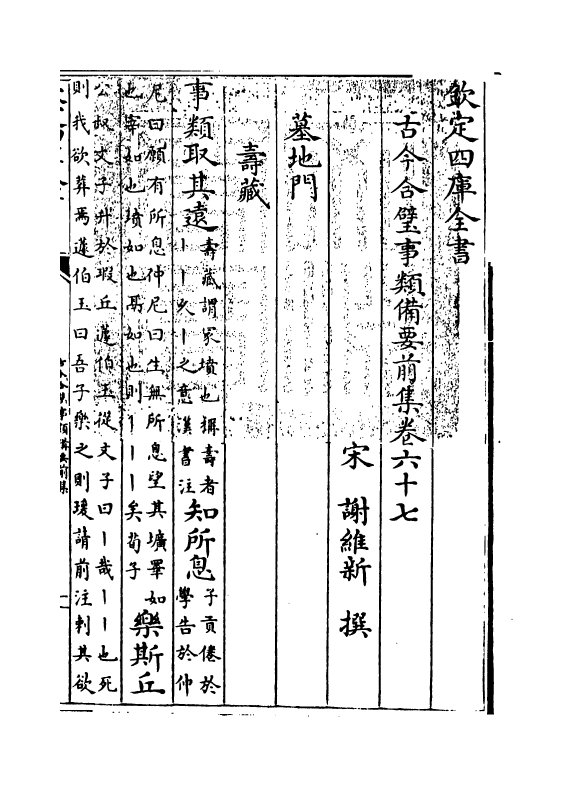 欽定四庫全書
古今合璧事類備要前集卷六十七
宋 謝維新 撰
墓地門
壽藏
事類取其遠壽藏謂冢墳也稱壽者丨丨久丨之意漢書注知所息子貢倦於學告於仲
尼曰願有所息仲尼曰生無所息望其壙睪如也宰如也墳如也鬲如也則丨丨丨矣荀子樂斯丘
公叔文子升於瑕丘蘧伯玉從文子曰丨哉丨丨也死則我欲葬焉蘧伯玉曰吾子樂之則瑗請前注刺其欲